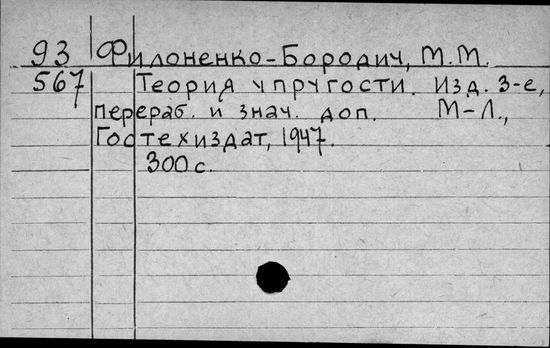 93 Филоненко-Бородич, М.М.
567 Теория упругости. Изд. 3-е,
перераб. и знач. доп. М-Л.,
Гостехиздат, 1947.
300 с.